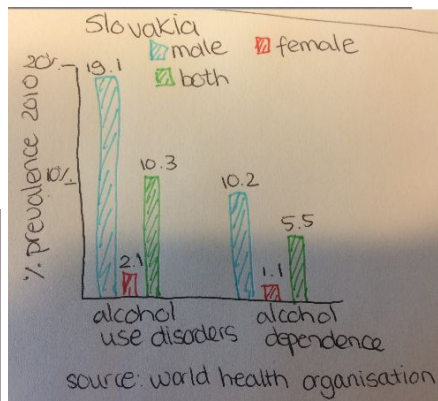 Slovakia
male
female
both
% prevalence 2010
20%
10%
19.1
2.1
10.3
10.2
1.1
5.5
alcohol
use disorders
alcohol
dependence
source: world health organisation